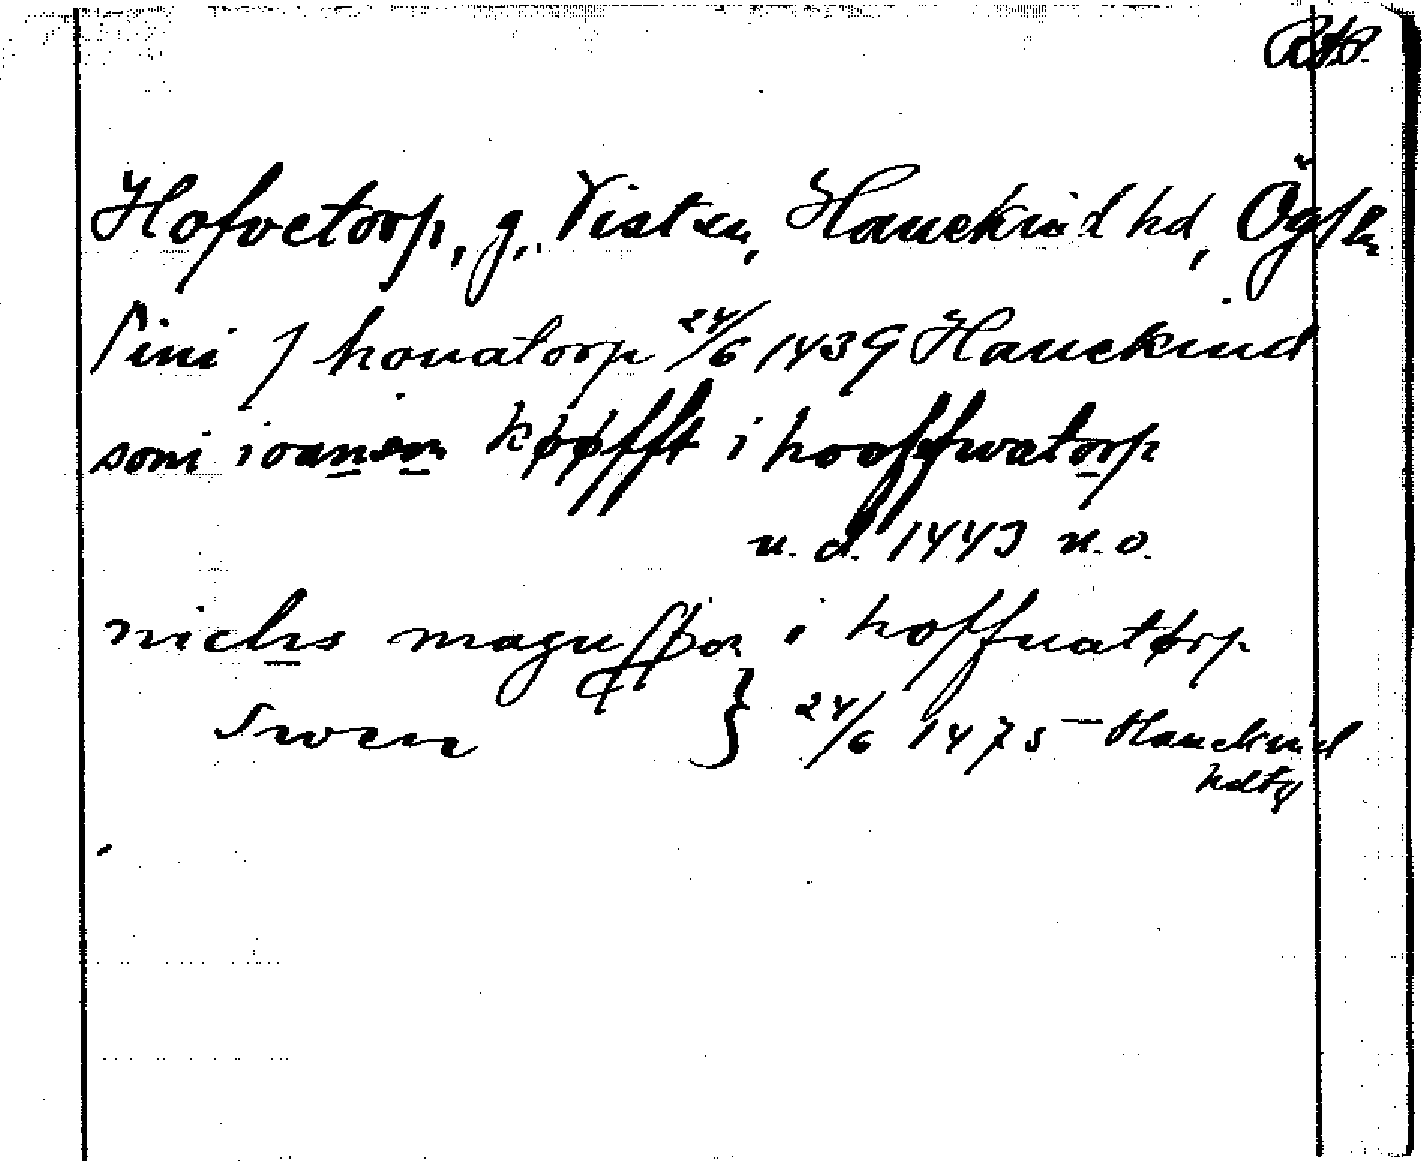 RAP.
Hofvetorp, g., Vist sn, Hanekind hd, Ögl
sini j houatorp 24/6 1439 Hanekind
som ioansson køøfft i hooffwatorp
u. d. 1443 u. o.
niclis magnsson i hoffuatørp
Swen } 24/6 1475 – Hanekind
hdtg